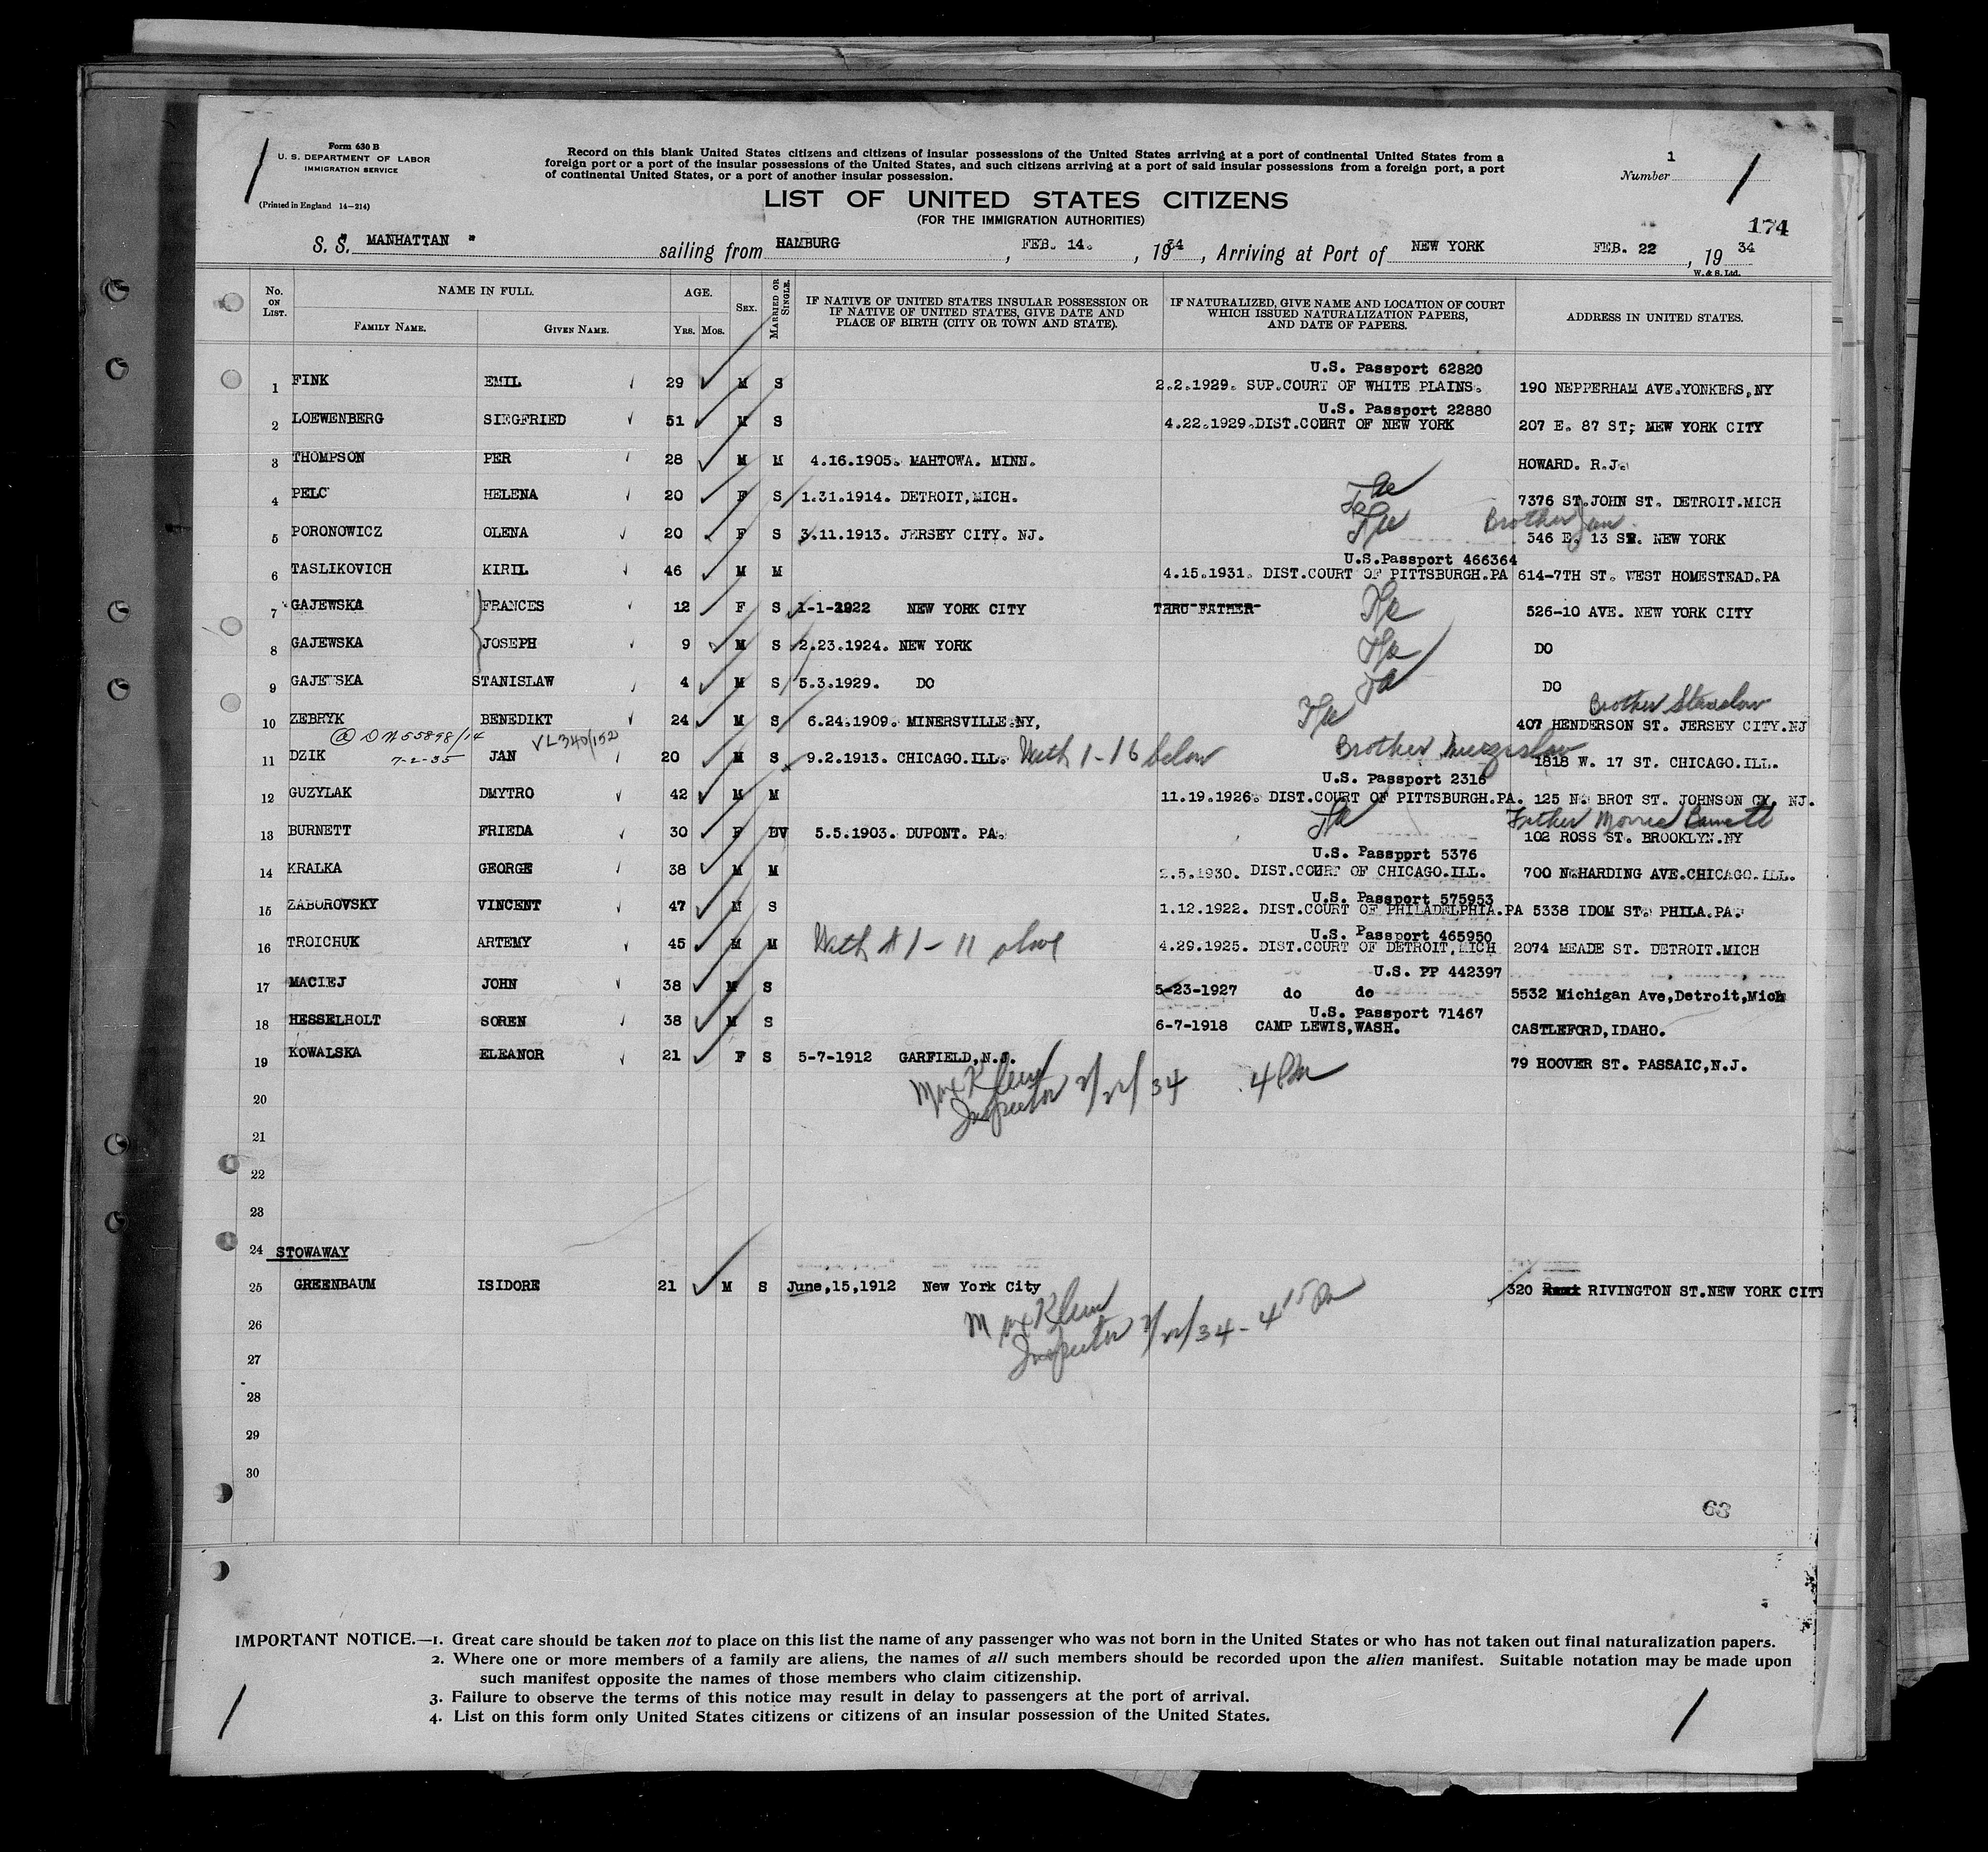 Form 630 B
U. S. DEPARTMENT OF LABOR
IMMIGRATION SERVICE
(Printed in England 14—214)
Record on this blank United States citizens and citizens of insular possessions of the United States arriving at a port of continental United States from a
foreign port or a port of the insular possessions of the United States, and such citizens arriving at a port of said insular possessions from a foreign port, a port
of continental United States, or a port of another insular possession.
1
Number
LIST OF UNITED STATES CITIZENS
(FOR THE IMMIGRATION AUTHORITIES)
174
S. S. " MANHATTAN " sailing from HAMBURG , FEB. 14. , 1934 , Arriving at Port of NEW YORK FEB. 22 , 19 34
W. & S. Ltd.
No. ON LIST. NAME IN FULL. AGE. SEX. MARRIED OR SINGLE. IF NATIVE OF UNITED STATES INSULAR POSSESSION OR IF NATIVE OF UNITED STATES, GIVE DATE AND PLACE OF BIRTH (CITY OR TOWN AND STATE). IF NATURALIZED, GIVE NAME AND LOCATION OF COURT WHICH ISSUED NATURALIZATION PAPERS, AND DATE OF PAPERS. ADDRESS IN UNITED STATES.
FAMILY NAME. GIVEN NAME. YRS. MOS.
U.S. Passport 62820
1 FINK EMIL 29 M S 2.2.1929. SUP.COURT OF WHITE PLAINS. 190 NEPPERHAM AVE.YONKERS.NY
U.S. Passport 22880
2 LOEWENBERG SIEGFRIED 51 M S 4.22.1929.DIST.COURT OF NEW YORK 207 E. 87 ST; NEW YORK CITY
3 THOMPSON PER 28 M M 4.16.1905. MAHTOWA. MINN. HOWARD. R.J.
4 PELC HELENA 20 F S 1.31.1914. DETROIT,MICH. 7376 ST.JOHN ST. DETROIT.MICH
Brother Jan
5 PORONOWICZ OLENA 20 F S 3.11.1913. JERSEY CITY. NJ. 546 E. 13 ST. NEW YORK
U.S.Passport 466364
6 TASLIKOVICH KIRIL 46 M M 4.15.1931. DIST.COURT OF PITTSBURGH.PA 614-7TH ST. WEST HOMESTEAD.PA
7 GAJEWSKA FRANCES 12 F S 1-1-1922 NEW YORK CITY THRU FATHER 526-10 AVE. NEW YORK CITY
8 GAJEWSKA JOSEPH 9 M S 2.23.1924. NEW YORK DO
9 GAJEWSKA STANISLAW 4 M S 5.3.1929. DO DO
Brother Stanislow
10 ZEBRYK BENEDIKT 24 M S 6.24.1909. MINERSVILLE.NY, 407 HENDERSON ST. JERSEY CITY.NJ
55898/14 VL340/152
7-2-35
11 DZIK JAN 20 M S 9.2.1913. CHICAGO.ILL. With 1-16 below Brother 1818 W. 17 ST. CHICAGO.ILL.
U.S. Passport 2316
12 GUZYLAK DMYTRO 42 M M 11.19.1926. DIST.COURT OF PITTSBURGH.PA. 125 N. BROT ST. JOHNSON CY. NJ.
Father Morris Burnett
13 BURNETT FRIEDA 30 F DV 5.5.1903. DUPONT. PA. 102 ROSS ST. BROOKLYN.NY
U.S. Passport 5376
14 KRALKA GEORGE 38 M M 2.5.1930. DIST.COURT OF CHICAGO.ILL. 700 N.HARDING AVE.CHICAGO.ILL.
U.S. Passport 575953
15 ZABOROVSKY VINCENT 47 M S 1.12.1922. DIST.COURT OF PHILADELPHIA.PA 5338 IDOM ST. PHILA.PA.
U.S. Passport 465950
16 TROICHUK ARTEMY 45 M M With # 1-11 above 4.29.1925. DIST.COURT OF DETROIT,MICH 2074 MEADE ST. DETROIT.MICH
U.S. PP 442397
17 MACIEJ JOHN 38 M S 5-23-1927 do do 5532 Michigan Ave,Detroit,Mich
U.S. Passport 71467
18 HESSELHOLT SOREN 38 M S 6-7-1918 CAMP LEWIS,WASH. CASTLEFORD,IDAHO.
19 KOWALSKA ELEANOR 21 F S 5-7-1912 GARFIELD,N.J. 79 HOOVER ST. PASSAIC,N.J.
Max Klein
Inspector 2/22/34 4 Pm
20
21
22
23
24 STOWAWAY
25 GREENBAUM ISIDORE 21 M S June,15,1912 New York City 320 RIVINGTON ST.NEW YORK CITY
Max Klein
Inspector 2/22/34 - 4 15 Pm
26
27
28
29
30
63
IMPORTANT NOTICE.—1. Great care should be taken not to place on this list the name of any passenger who was not born in the United States or who has not taken out final naturalization papers.
2. Where one or more members of a family are aliens, the names of all such members should be recorded upon the alien manifest. Suitable notation may be made upon
such manifest opposite the names of those members who claim citizenship.
3. Failure to observe the terms of this notice may result in delay to passengers at the port of arrival.
4. List on this form only United States citizens or citizens of an insular possession of the United States.